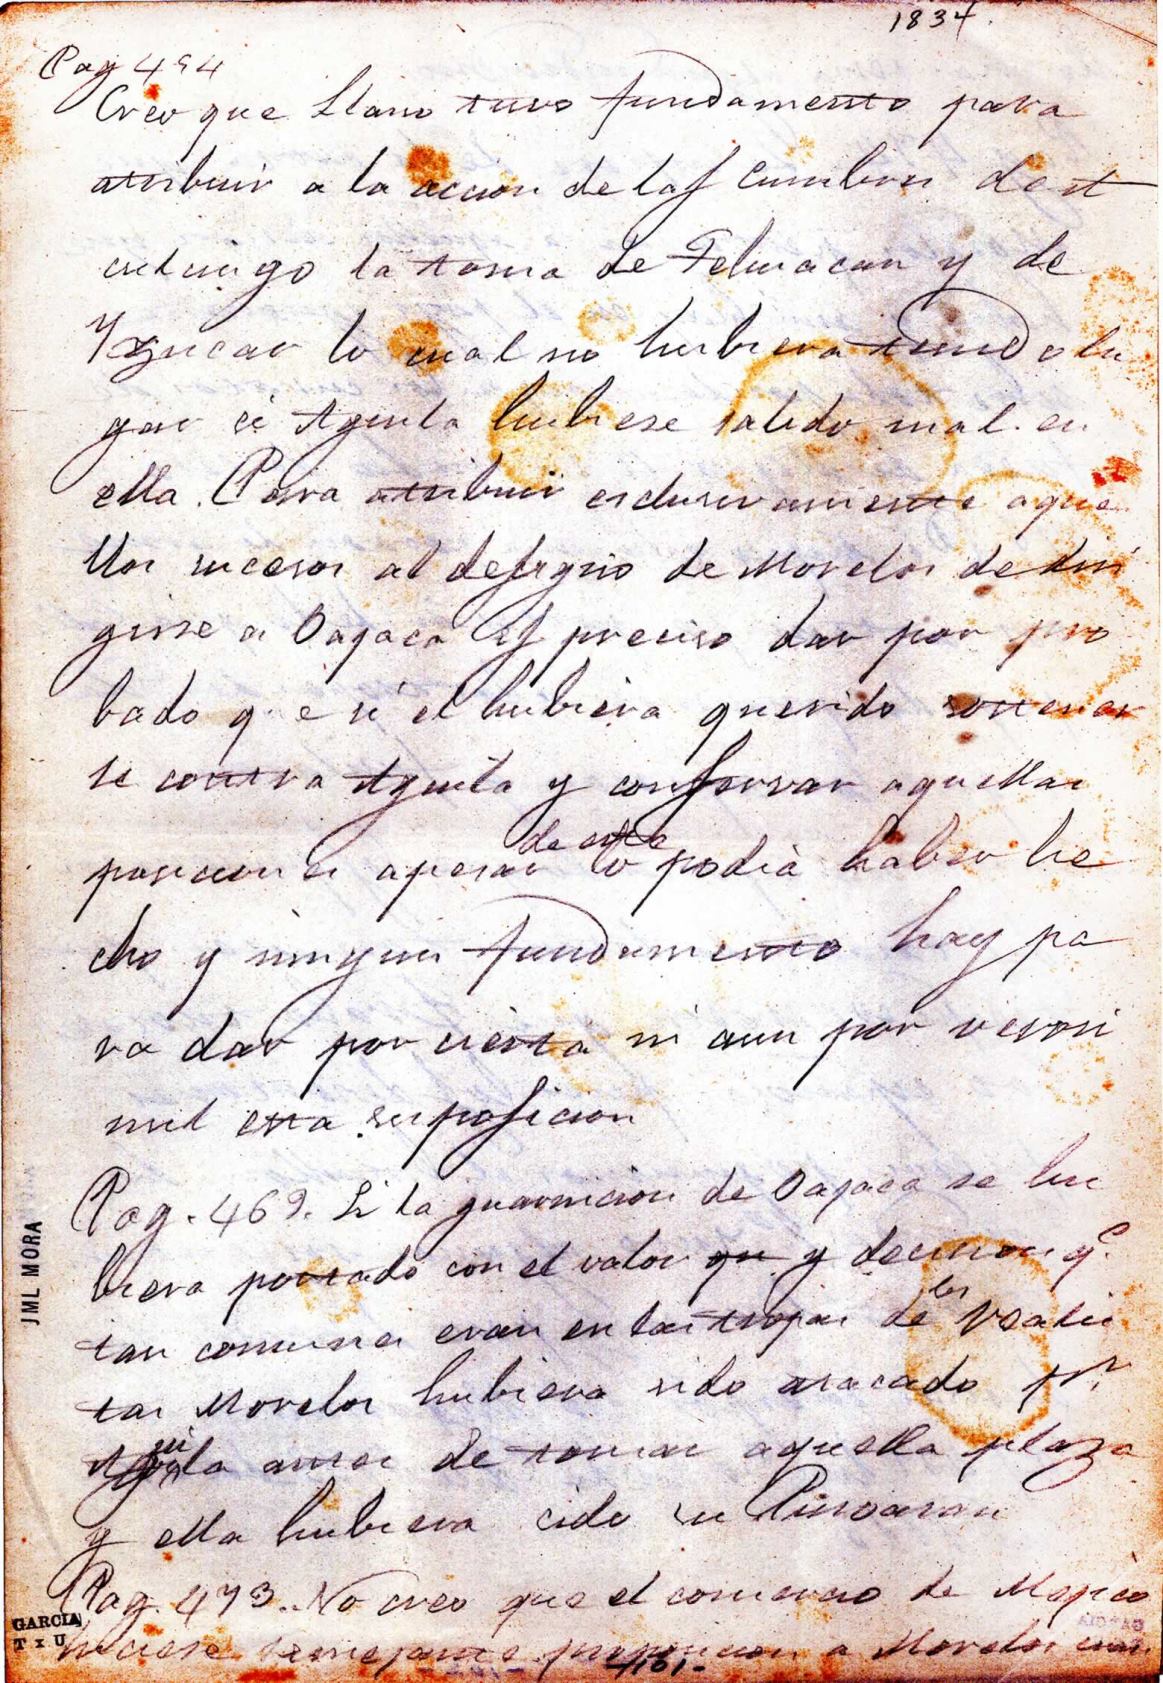 1834.
Pag 494
Creo que Llano tuvo fundamento para
atribuir a la accion de las Cumbres de A
culcingo la toma de Tehuacan y de
Yzucar lo cual no hubiera tenido lu
gar si Aguila hubiese salido mal en
ella. Para atribuir esclusivamente aque
llos sucesos al designio de Morelos de diri
girse a Oajaca es preciso dar por pro
bado que si el hubiera querido sostener
se contra Aguila y conservar aquellas
posiciones apesar de este lo podia haber he
cho y ningun fundamento hay pa
ra dar por cierta ni aun por verosi
mil esta suposicion
Pag. 469. Si la guarnicion de Oajaca se hu
biera portado con el valor qu y decision q.e
tan comunes eran en las tropas de los realis
tas Morelos hubiera sido atacado p.r
Aguila antes de tomar aquella plaza
y ella hubiera cido su
Pag. 473. No creo que el comercio de Mejico
hiciese semejante proposicion a Morelos
JML MORA
GARCIA
T x U
-101-